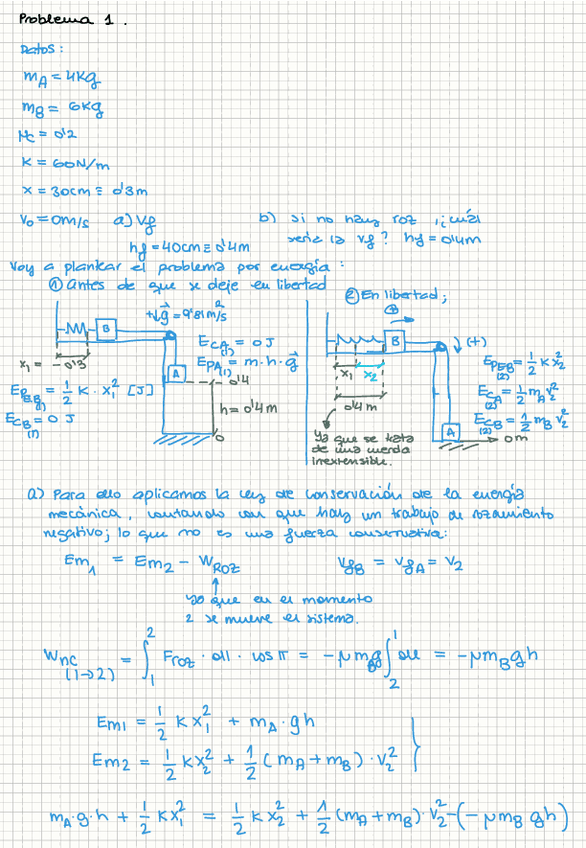 Problema 1.
Datos:
m_A = 4Kg
m_B = 6Kg
μ = 0'2
K = 60N/m
x = 30cm ≡ 0'3m
V_0 = 0m/s a) Vf b) si no hay roz ¡¿cuál
hf = 40cm ≡ 0'4m sería la Vf? hf = 0'4m
Voy a plantear el problema por energía:
① Antes de que se deje en libertad ② En libertad;
+↓g⃗ = 9'81m/s²
B
E_CA(1) = 0 J
E_PA(1) = m·h·g⃗
x_1 = -0'3
A
0'4
h = 0'4m
0
E_PEB(1) = 1/2 K·x_1² [J]
E_CB(1) = 0 J
⊕
B
(+)
x_1 x_2
0'4m
A
0m
E_PEB(2) = 1/2 K x_2²
E_CA(2) = 1/2 m_A V_2²
E_CB(2) = 1/2 m_B V_2²
ya que se trata
de una cuerda
inextensible.
a) Para ello aplicamos la ley de conservación de la energía
mecánica, contando con que hay un trabajo de rozamiento
negativo; lo que no es una fuerza conservativa:
Em_1 = Em_2 - W_ROZ Vf_B = Vf_A = V_2
ya que en el momento
2 se mueve el sistema.
W_nc (1→2) = ∫_1^2 F_roz · dl · cos π = -μm_Bg ∫_2^1 dl = -μm_B gh
Em1 = 1/2 K x_1² + m_A·gh
Em2 = 1/2 K x_2² + 1/2 (m_A+m_B)·V_2²
m_A·g·h + 1/2 K x_1² = 1/2 K x_2² + 1/2 (m_A+m_B)·V_2² - (-μm_B gh)